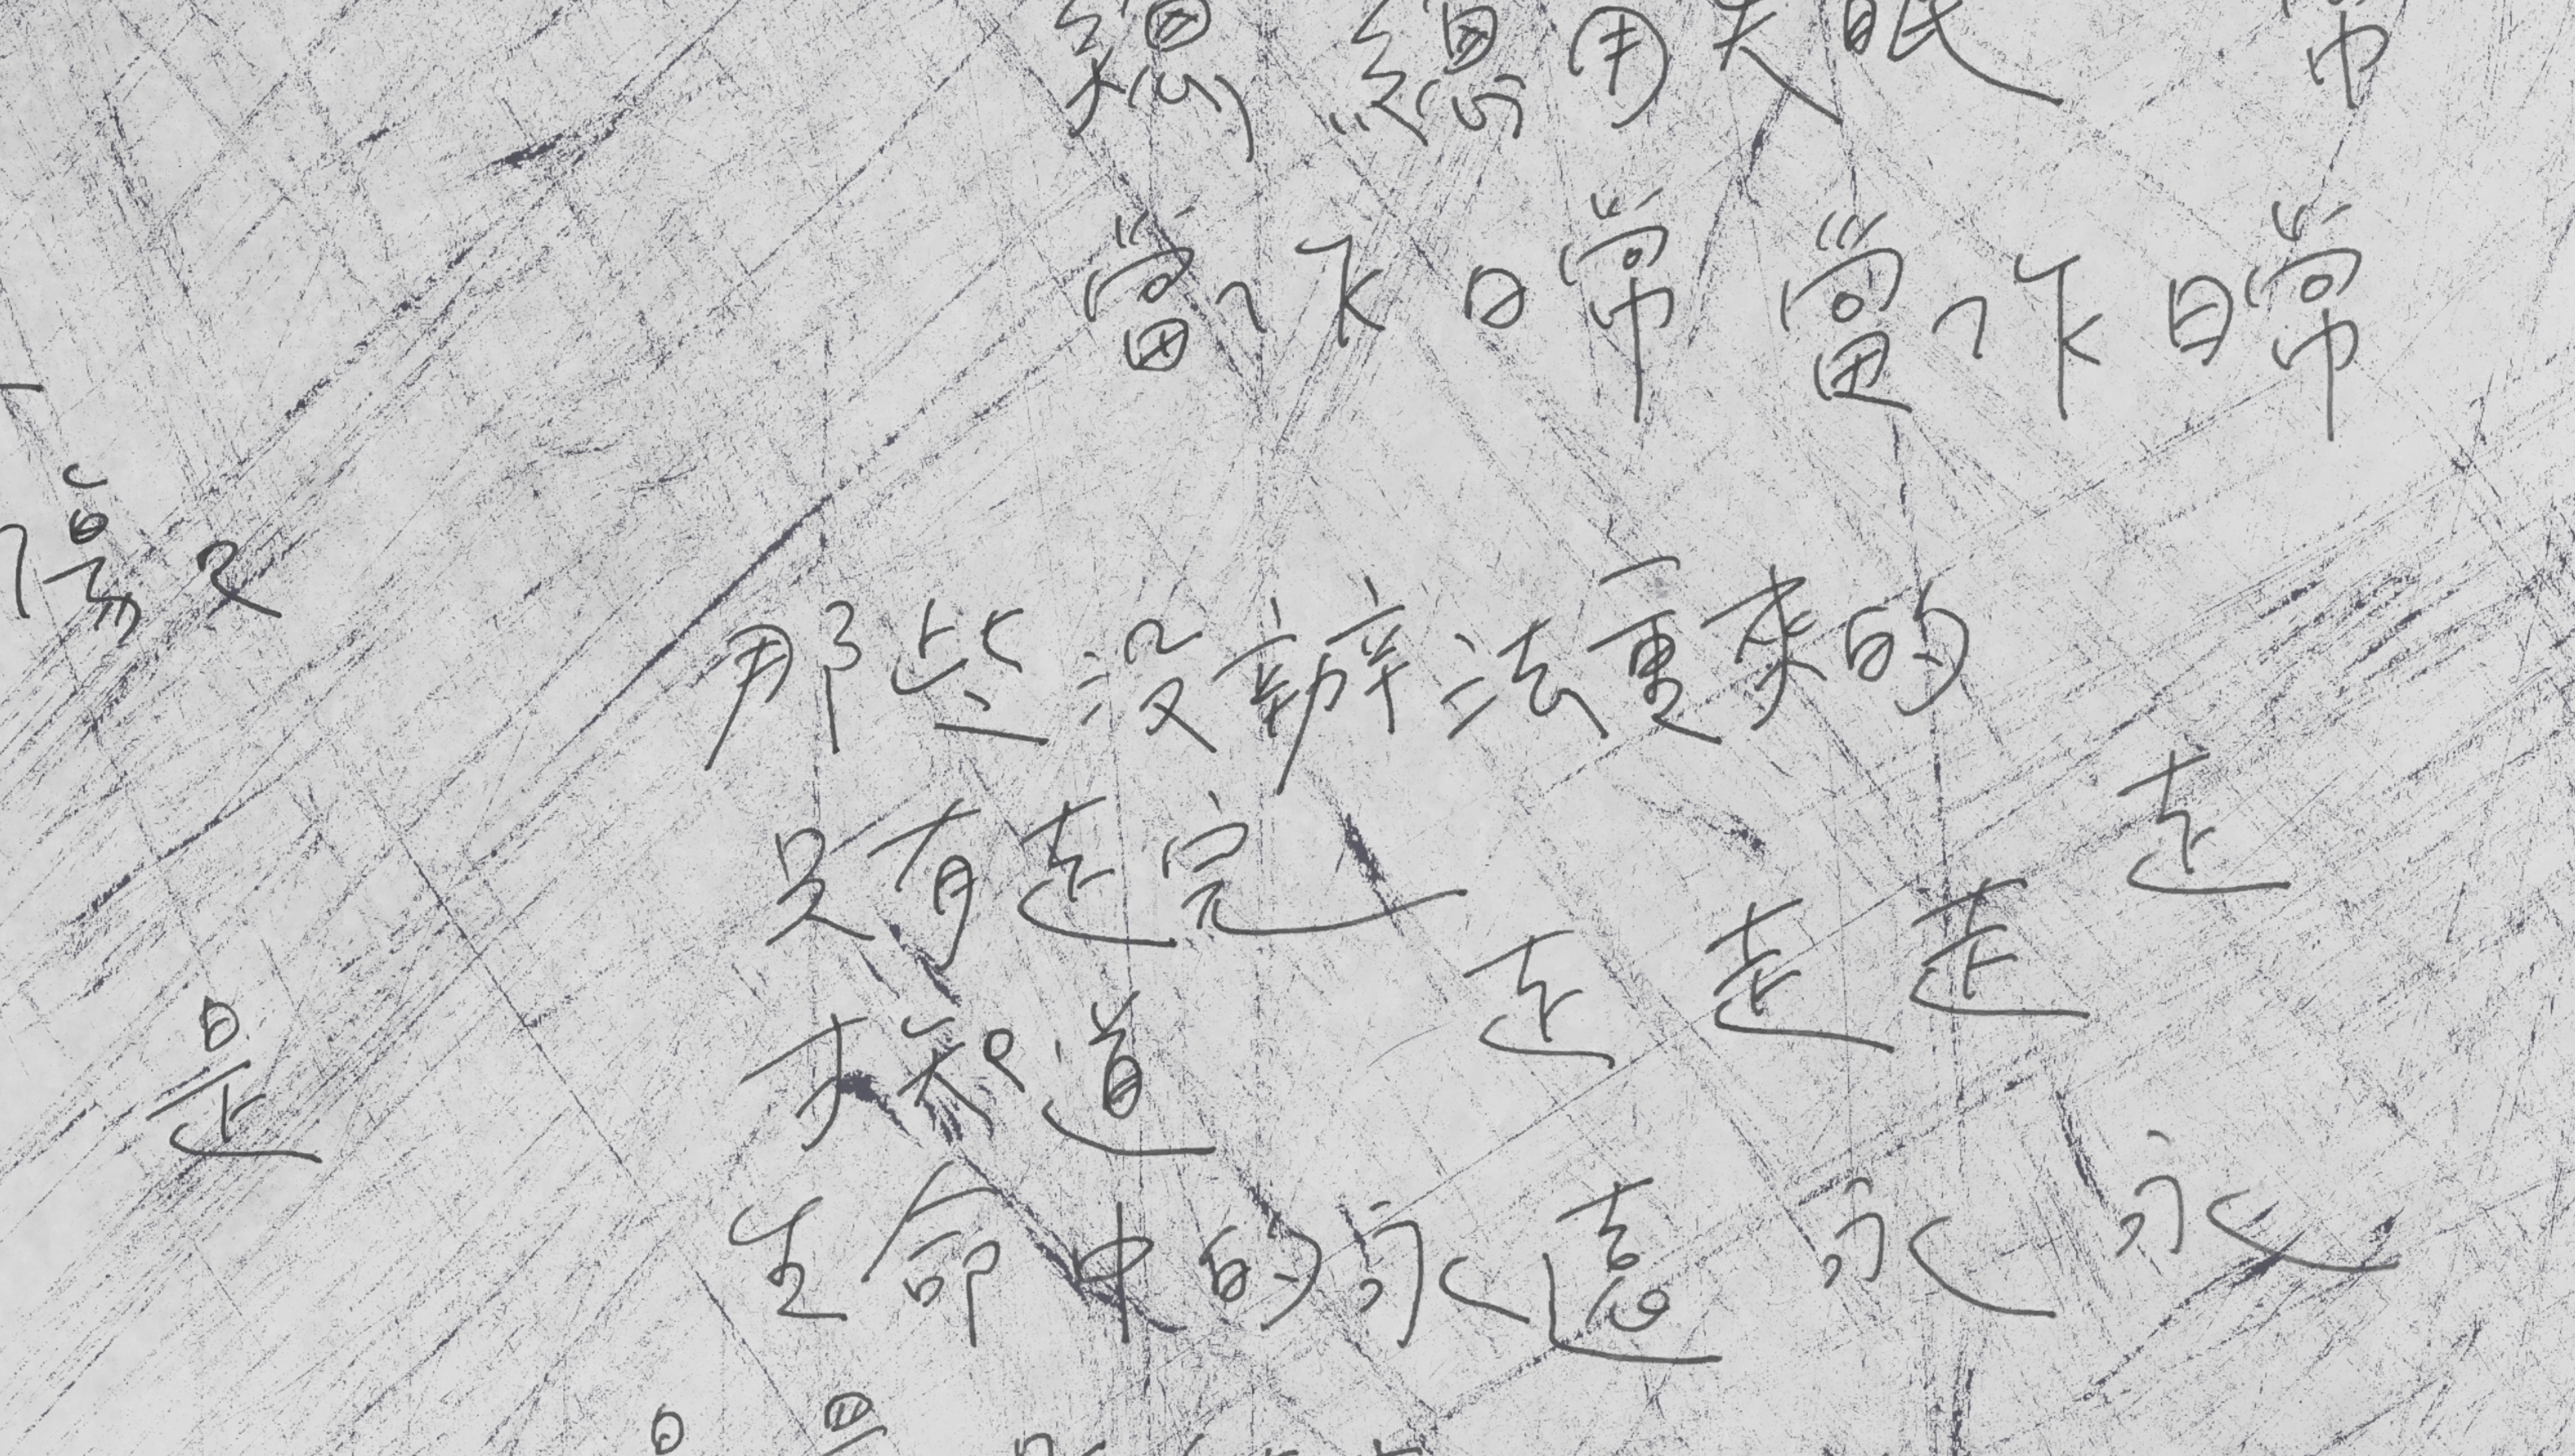 總 總用失眠 常
當作日常 當作日常
傷又
那些沒辦法重來的
走
只有走完
走 走 走
是
才知道
生命中的永遠 永 永